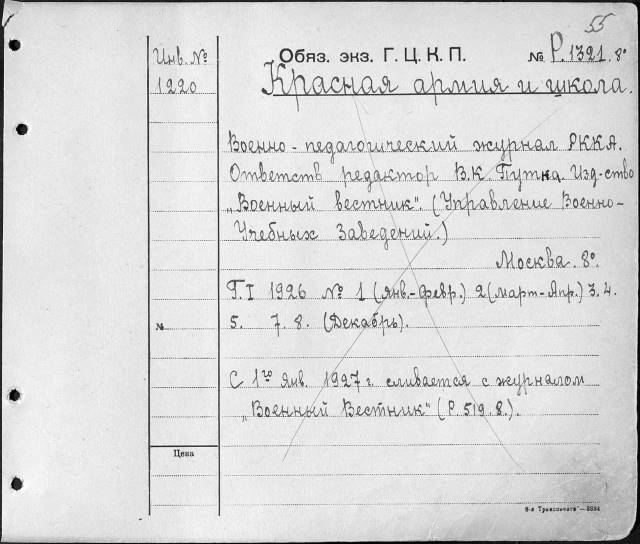 55
Инв. №
1220
Обяз. экз. Г. Ц. К. П. № Р.1321.8°
Красная армия и школа.
Военно-педагогический журнал РККА.
Ответств редактор В.К Путна. Изд-ство
„Военный вестник". (Управление Военно-
Учебных Заведений.)
Москва. 8°.
Г. I 1926 № 1 (Янв.-Февр.) 2 (март-Апр.) 3. 4.
№ 5. 7. 8. (Декабрь).
С 1го Янв. 1927 г. сливается с журналом
„Военный Вестник" (Р. 519. 8.).
Цена
8-я Транспечати"—3884